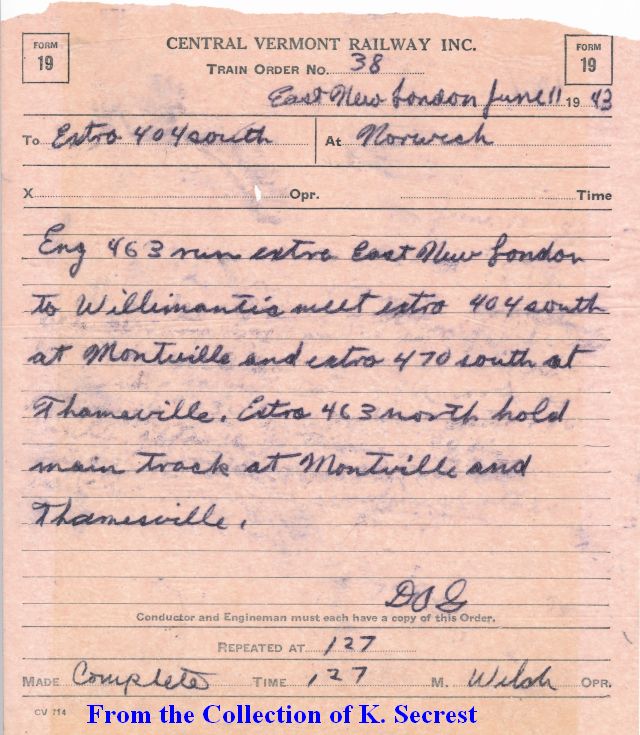 FORM 19
CENTRAL VERMONT RAILWAY INC.
FORM 19
TRAIN ORDER NO. 38
East New London June 11 1943
To Extra 404 south At Norwich
X Opr. Time
Eng 463 run extra East New London
to Willimantic meet extra 404 south
at Montville and extra 470 south at
Thamesville. Extra 463 north hold
main track at Montville and
Thamesville.
Conductor and Engineman must each have a copy of this Order.
REPEATED AT 127
MADE Complete TIME 127 M. Welsh OPR.
CV 714
From the Collection of K. Secrest